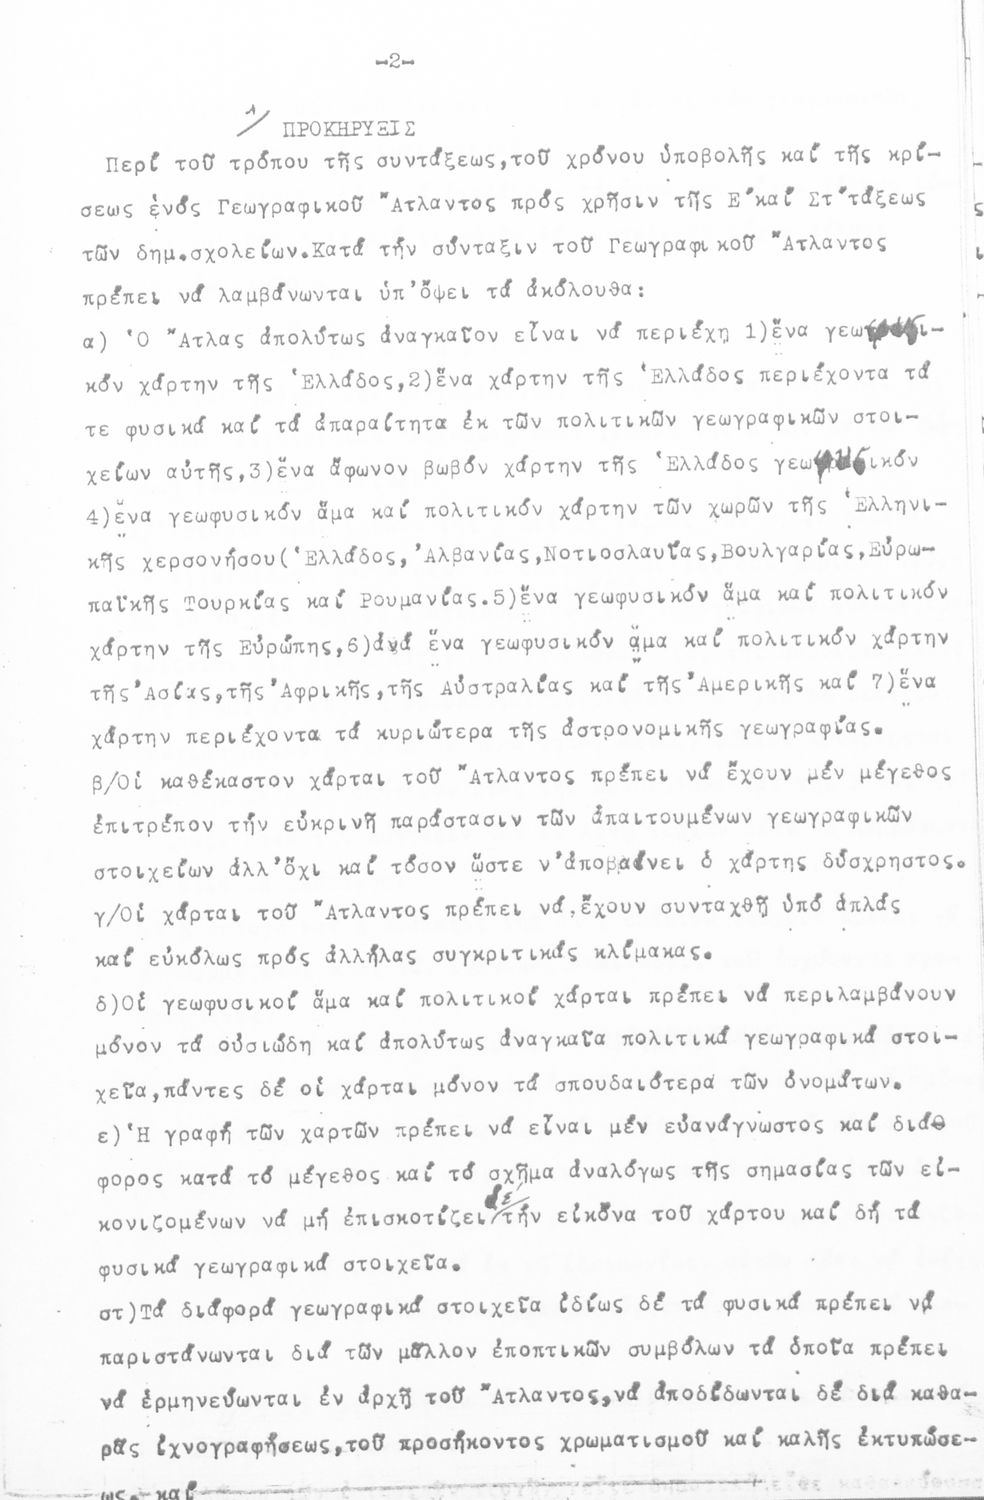 -2-
1/ ΠΡΟΚΗΡΥΞΙΣ
Περί τοῦ τρόπου τῆς συντάξεως,τοῦ χρόνου ὑποβολῆς καί τῆς κρί-
σεως ἑνός Γεωγραφικοῦ Ἄτλαντος πρός χρῆσιν τῆς Ε΄καί Στ΄τάξεως
τῶν δημ.σχολείων.Κατά τήν σύνταξιν τοῦ Γεωγραφικοῦ Ἄτλαντος
πρέπει νά λαμβάνωνται ὑπ'ὄψει τά ἀκόλουθα:
α) Ὁ Ἄτλας ἀπολύτως ἀναγκαῖον εἶναι νά περιέχῃ 1)ἕνα γεωφυσι-
κόν χάρτην τῆς Ἑλλάδος,2)ἕνα χάρτην τῆς Ἑλλάδος περιέχοντα τά
τε φυσικά καί τά ἀπαραίτητα ἐκ τῶν πολιτικῶν γεωγραφικῶν στοι-
χείων αὐτῆς,3)ἕνα ἄφωνον βωβόν χάρτην τῆς Ἑλλάδος γεωφυσικόν
4)ἕνα γεωφυσικόν ἅμα καί πολιτικόν χάρτην τῶν χωρῶν τῆς Ἑλληνι-
κῆς χερσονήσου(Ἑλλάδος,Ἀλβανίας,Νοτιοσλαυΐας,Βουλγαρίας,Εὐρω-
παϊκῆς Τουρκίας καί Ρουμανίας.5)ἕνα γεωφυσικόν ἅμα καί πολιτικόν
χάρτην τῆς Εὐρώπης,6)ἀνά ἕνα γεωφυσικόν ἅμα καί πολιτικόν χάρτην
τῆς Ἀσίας,τῆς Ἀφρικῆς,τῆς Αὐστραλίας καί τῆς Ἀμερικῆς καί 7)ἕνα
χάρτην περιέχοντα τά κυριώτερα τῆς ἀστρονομικῆς γεωγραφίας.
β/Οἱ καθέκαστον χάρται τοῦ Ἄτλαντος πρέπει νά ἔχουν μέν μέγεθος
ἐπιτρέπον τήν εὐκρινῆ παράστασιν τῶν ἀπαιτουμένων γεωγραφικῶν
στοιχείων ἀλλ'ὄχι καί τόσον ὥστε ν'ἀποβαίνει ὁ χάρτης δύσχρηστος.
γ/Οἱ χάρται τοῦ Ἄτλαντος πρέπει νά ἔχουν συνταχθῆ ὑπό ἁπλάς
καί εὐκόλως πρός ἀλλήλας συγκριτικάς κλίμακας.
δ)Οἱ γεωφυσικοί ἅμα καί πολιτικοί χάρται πρέπει νά περιλαμβάνουν
μόνον τά οὐσιώδη καί ἀπολύτως ἀναγκαῖα πολιτικά γεωγραφικά στοι-
χεῖα,πάντες δέ οἱ χάρται μόνον τά σπουδαιότερα τῶν ὀνομάτων.
ε)Ἡ γραφή τῶν χαρτῶν πρέπει νά εἶναι μέν εὐανάγνωστος καί διά
φορος κατά τό μέγεθος καί τό σχῆμα ἀναλόγως τῆς σημασίας τῶν εἰ-
κονιζομένων νά μή ἐπισκοτίζει δέ τήν εἰκόνα τοῦ χάρτου καί δή τά
φυσικά γεωγραφικά στοιχεῖα.
στ)Τά διάφορά γεωγραφικά στοιχεῖα ἰδίως δέ τά φυσικά πρέπει νά
παριστάνωνται διά τῶν μᾶλλον ἐποπτικῶν συμβόλων τά ὁποῖα πρέπει
νά ἑρμηνεύωνται ἐν ἀρχῇ τοῦ Ἄτλαντος,νά ἀποδίδωνται δέ διά καθα-
ρᾶς ἰχνογραφήσεως,τοῦ προσήκοντος χρωματισμοῦ καί καλῆς ἐκτυπώσε-
ως. καί